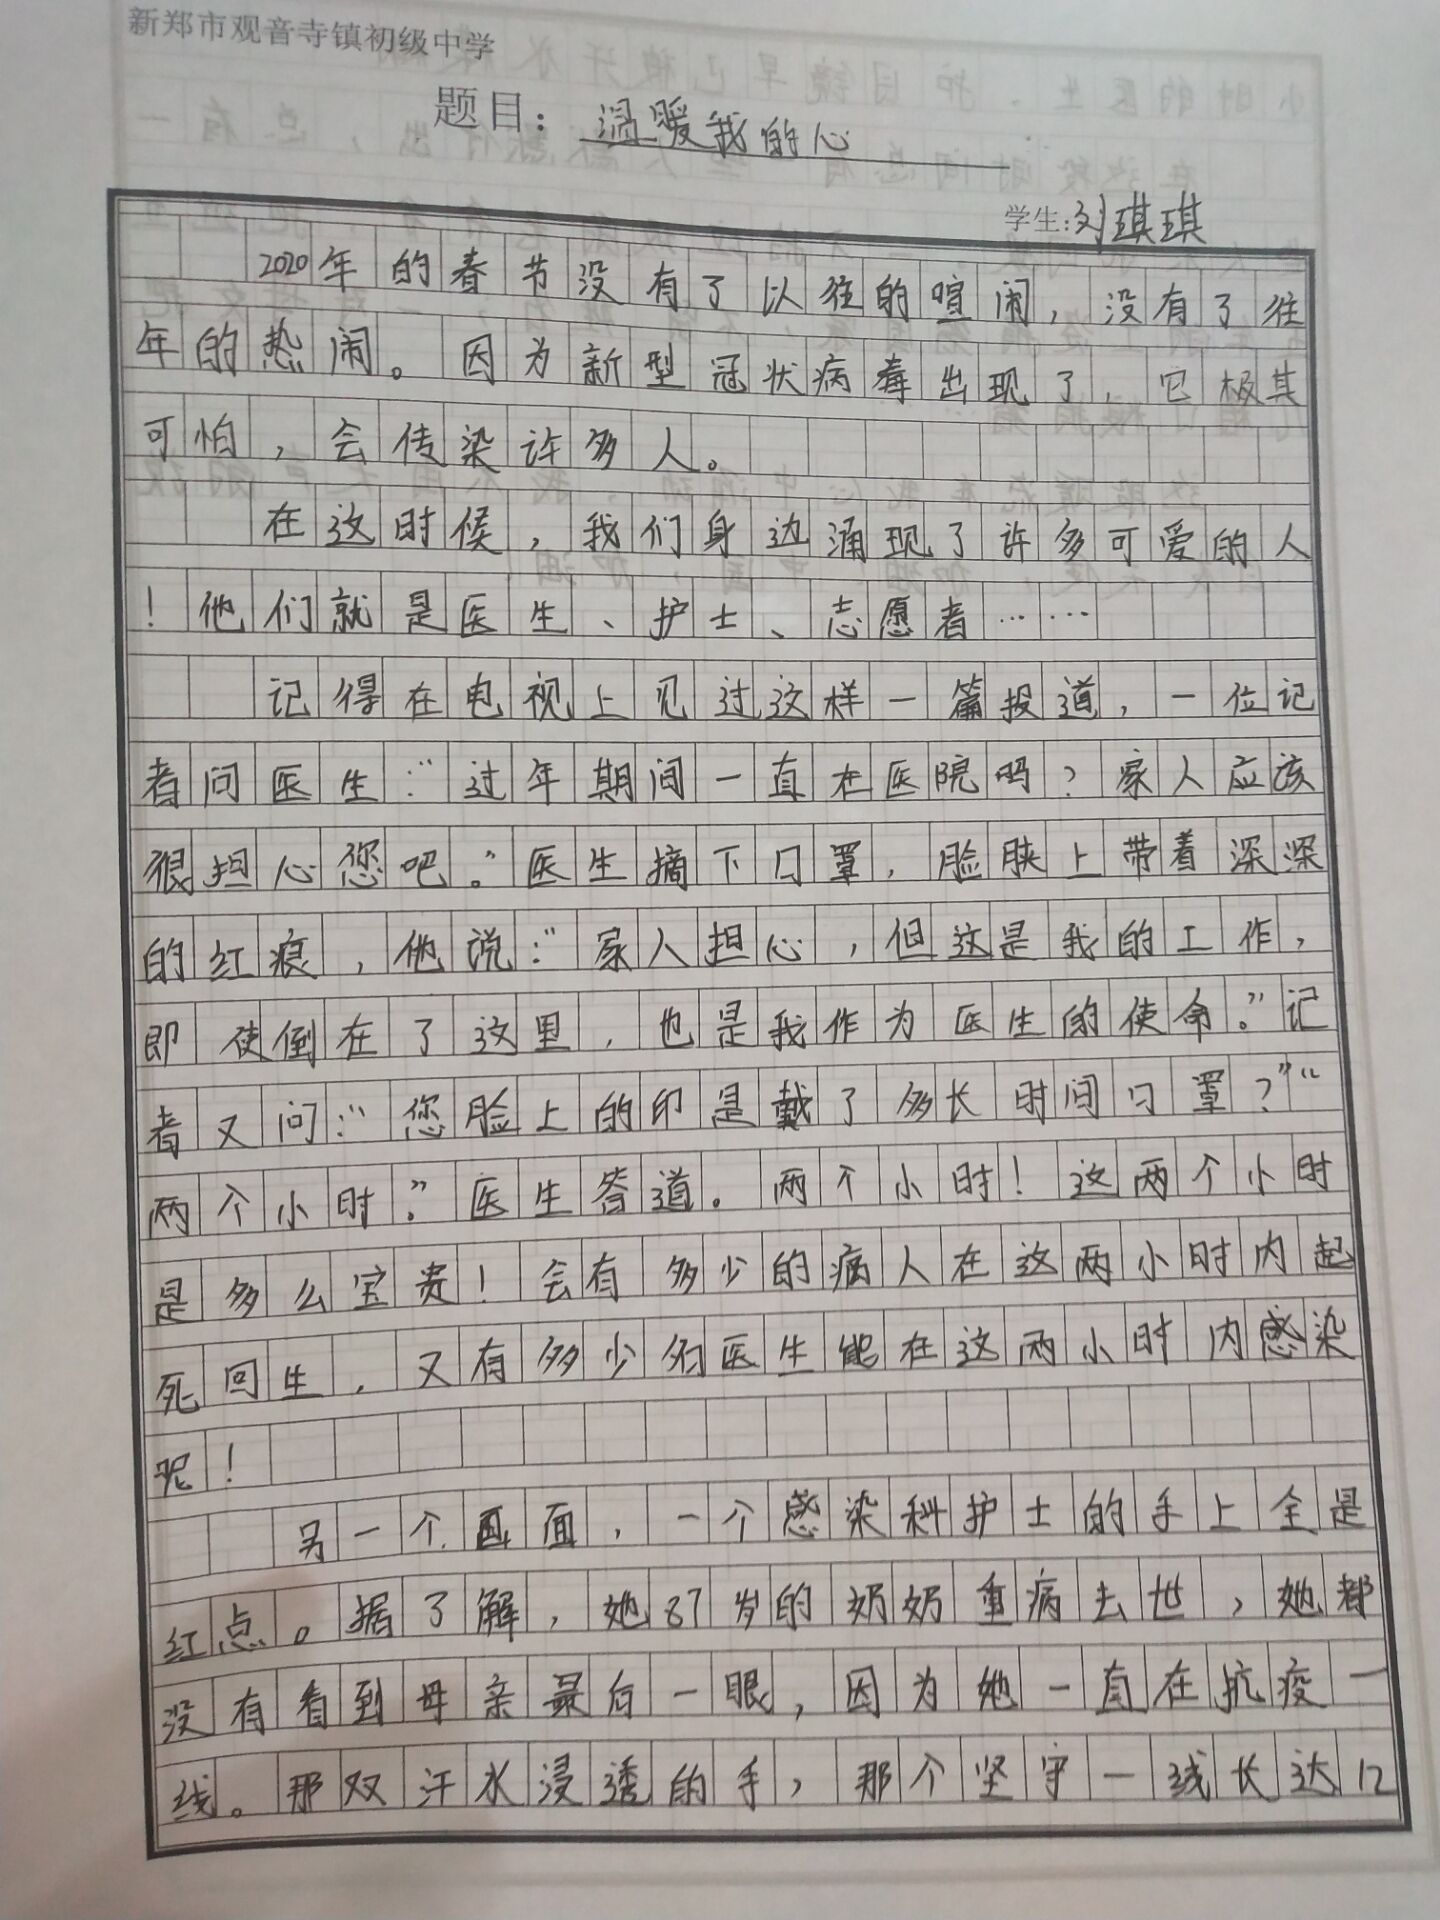 新郑市观音寺镇初级中学
题目：温暖我的心
学生：刘琪琪
2020年的春节没有了以往的喧闹，没有了往
年的热闹。因为新型冠状病毒出现了，它极其
可怕，会传染许多人。
在这时候，我们身边涌现了许多可爱的人
！他们就是医生、护士、志愿者……
记得在电视上见过这样一篇报道，一位记
者问医生：“过年期间一直在医院吗？家人应该
很担心您吧。”医生摘下口罩，脸颊上带着深深
的红痕，他说：“家人担心，但这是我的工作，
即使倒在了这里，也是我作为医生的使命。”记
者又问：“您脸上的印是戴了多长时间口罩？”“
两个小时。”医生答道。两个小时！这两个小时
是多么宝贵！会有多少的病人在这两小时内起
死回生，又有多少的医生能在这两小时内感染
呢！
另一个画面，一个感染科护士的手上全是
红点。据了解，她87岁的奶奶重病去世，她都
没有看到母亲最后一眼，因为她一直在抗疫一
线。那双汗水浸透的手，那个坚守一线长达12